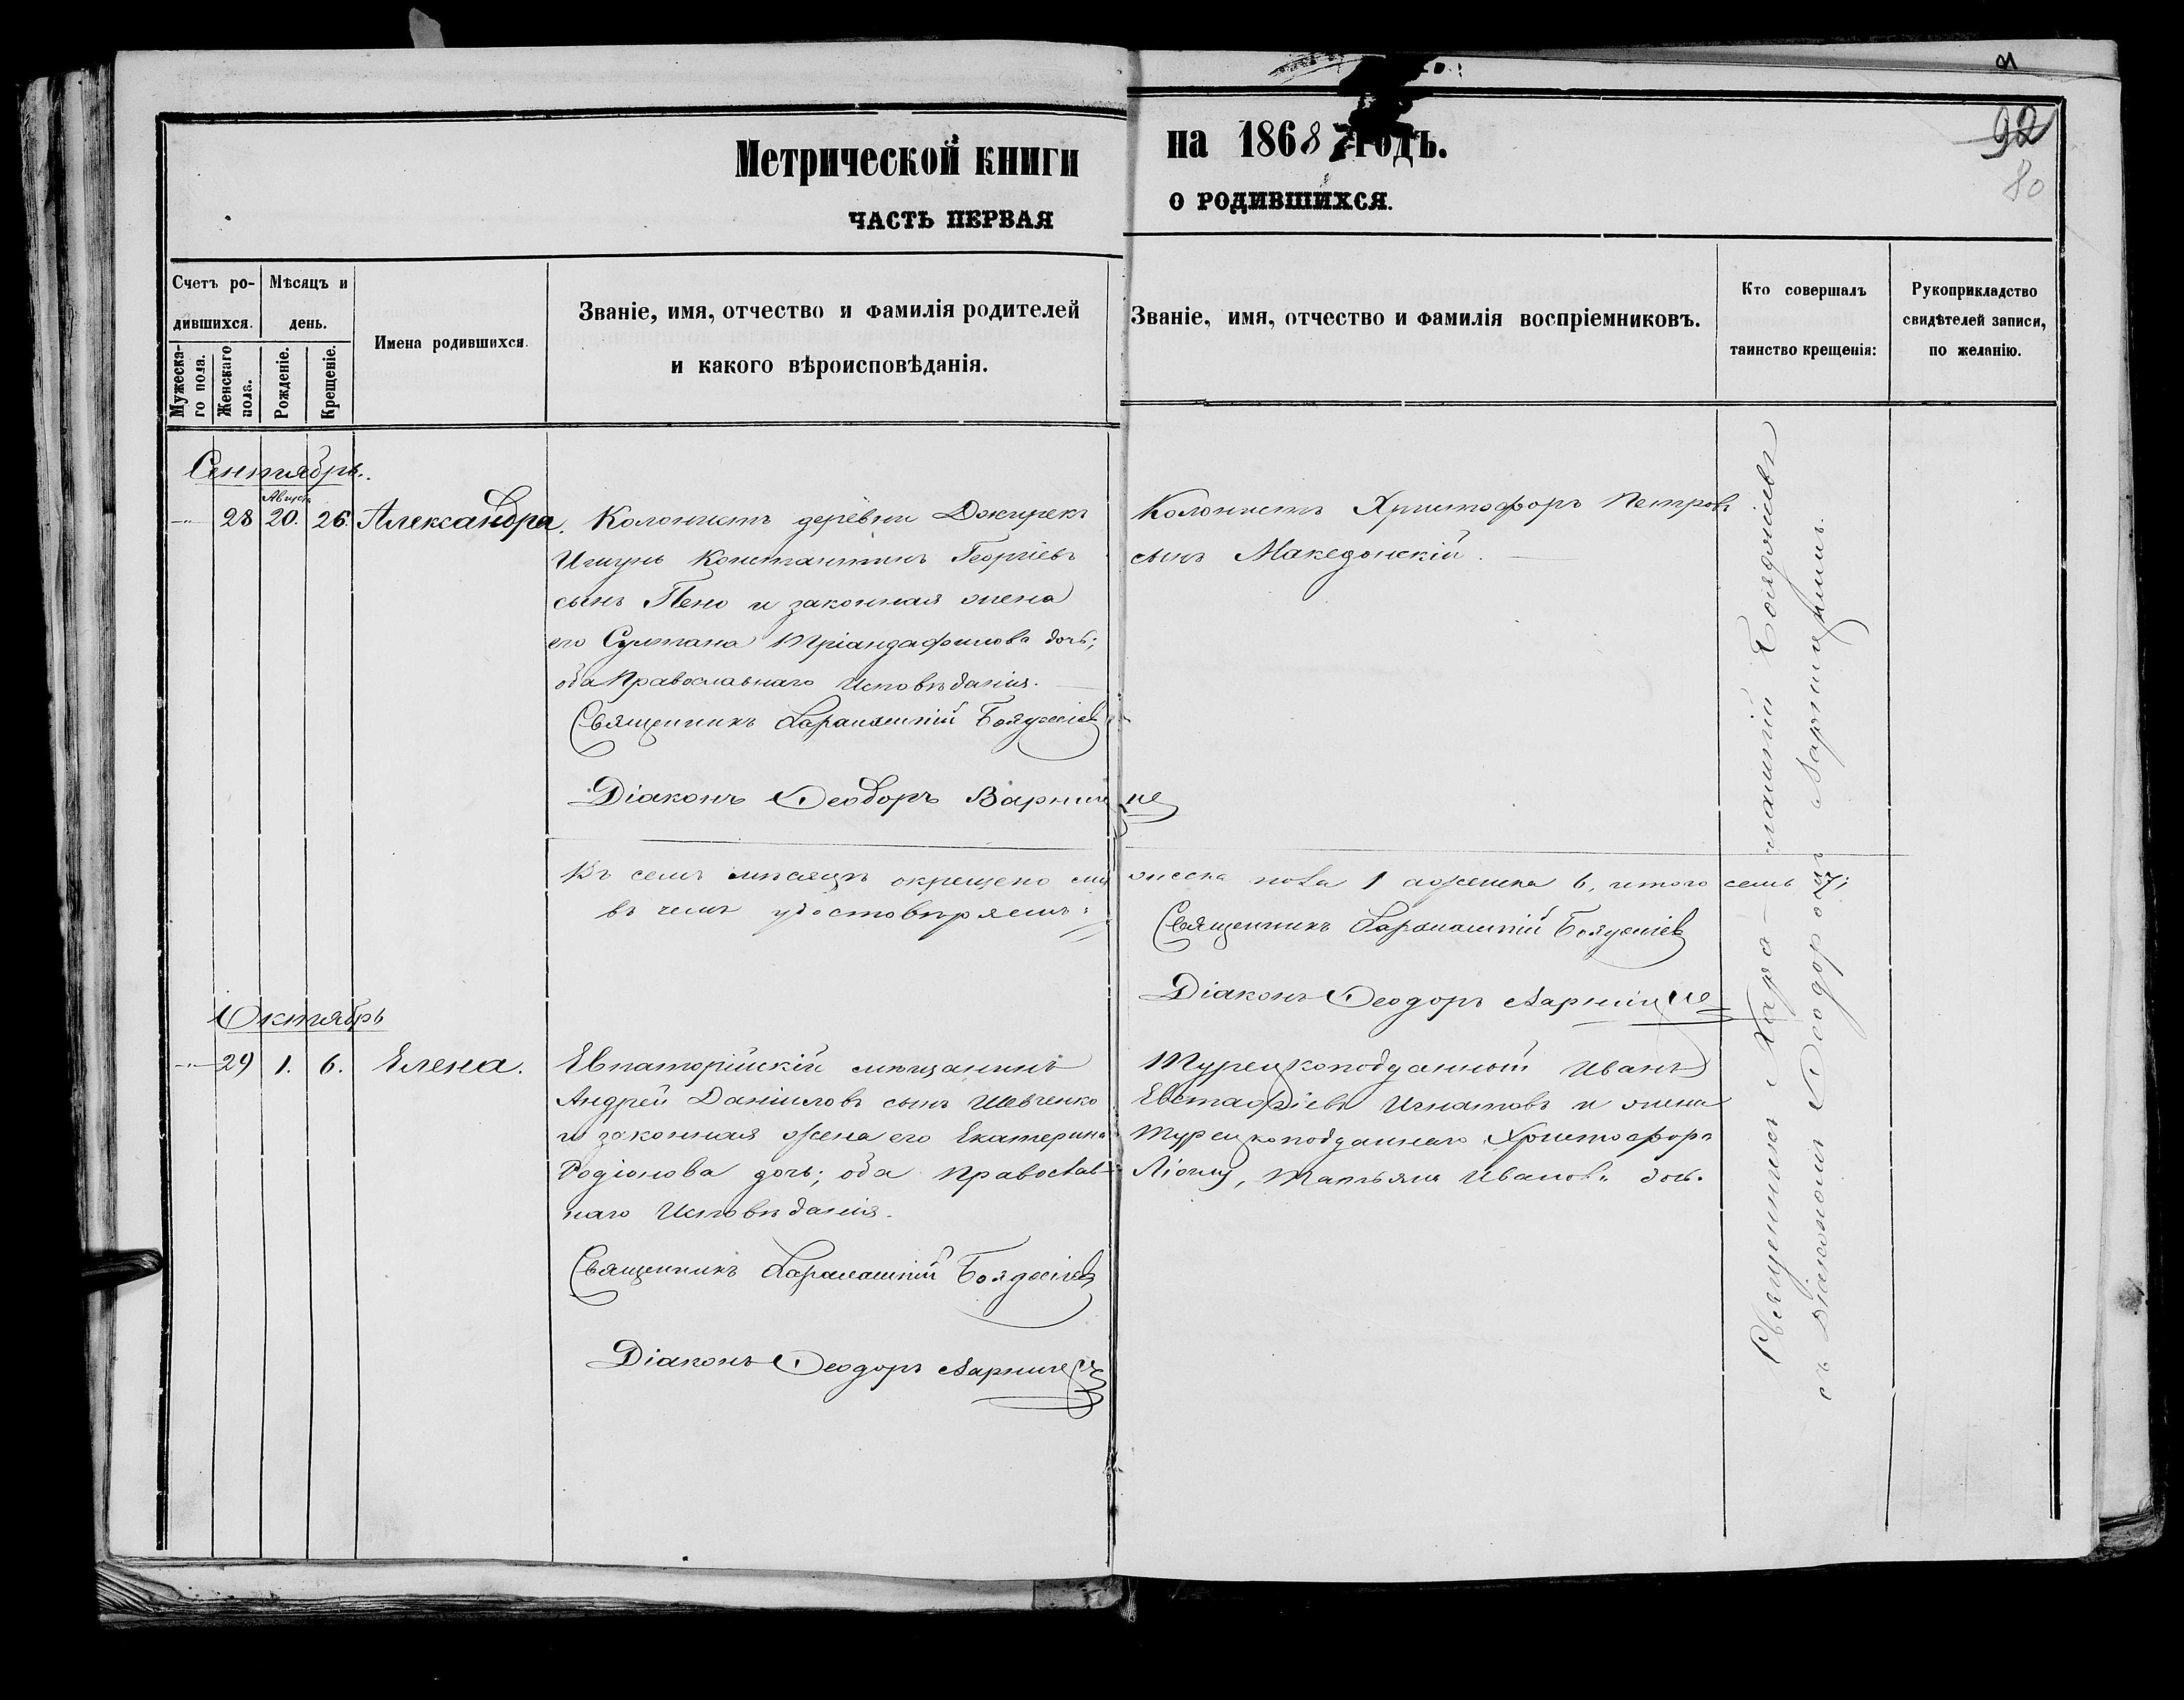 Метрической книги на 1868 годъ.
ЧАСТЬ ПЕРВАЯ О РОДИВШИХСЯ.
92
80
Счетъ ро-
дившихся.
Мужеска-
го пола.
Женскаго
пола.
Мѣсяцъ и
день.
Рожденіе.
Крещеніе.
Имена родившихся.
Званіе, имя, отчество и фамилія родителей
и какого вѣроисповѣданія.
Званіе, имя, отчество и фамилія воспріемниковъ.
Кто совершалъ
таинство крещенія:
Рукоприкладство
свидѣтелей записи,
по желанію.
Сентябрь.
Август
28 20. 26. Александра.
Колонистъ деревни
Константинъ Георгіевъ
сынъ Пено и законная жена
его Султана Тріандафилова дочь;
оба Православнаго Исповѣданія.
Священникъ Харалампій
Діаконъ Ѳеодоръ
Колонистъ Христофоръ Петровъ
сынъ Македонскій.
Въ семъ мѣсяцѣ окрещено мужеска пола 1 а женска 6, итого семь 7;
въ чемъ удостовѣряемъ:
Священникъ Харалампій
Діаконъ Ѳеодоръ
Октябрь
29 1. 6. Елена.
Евпаторійскій мѣщанинъ
Андрей Даніиловъ сынъ Шевченко
и законная жена его Екатерина
Родіонова дочь; оба Православ-
наго Исповѣданія.
Священникъ Харалампій
Діаконъ Ѳеодоръ
Турецкоподданный Иванъ
Евстафіевъ Игнатовъ и жена
Турецкоподданнаго Христофора
Татьяна Иванова дочь.
Священникъ Харалампій
съ Діакономъ Ѳеодоромъ